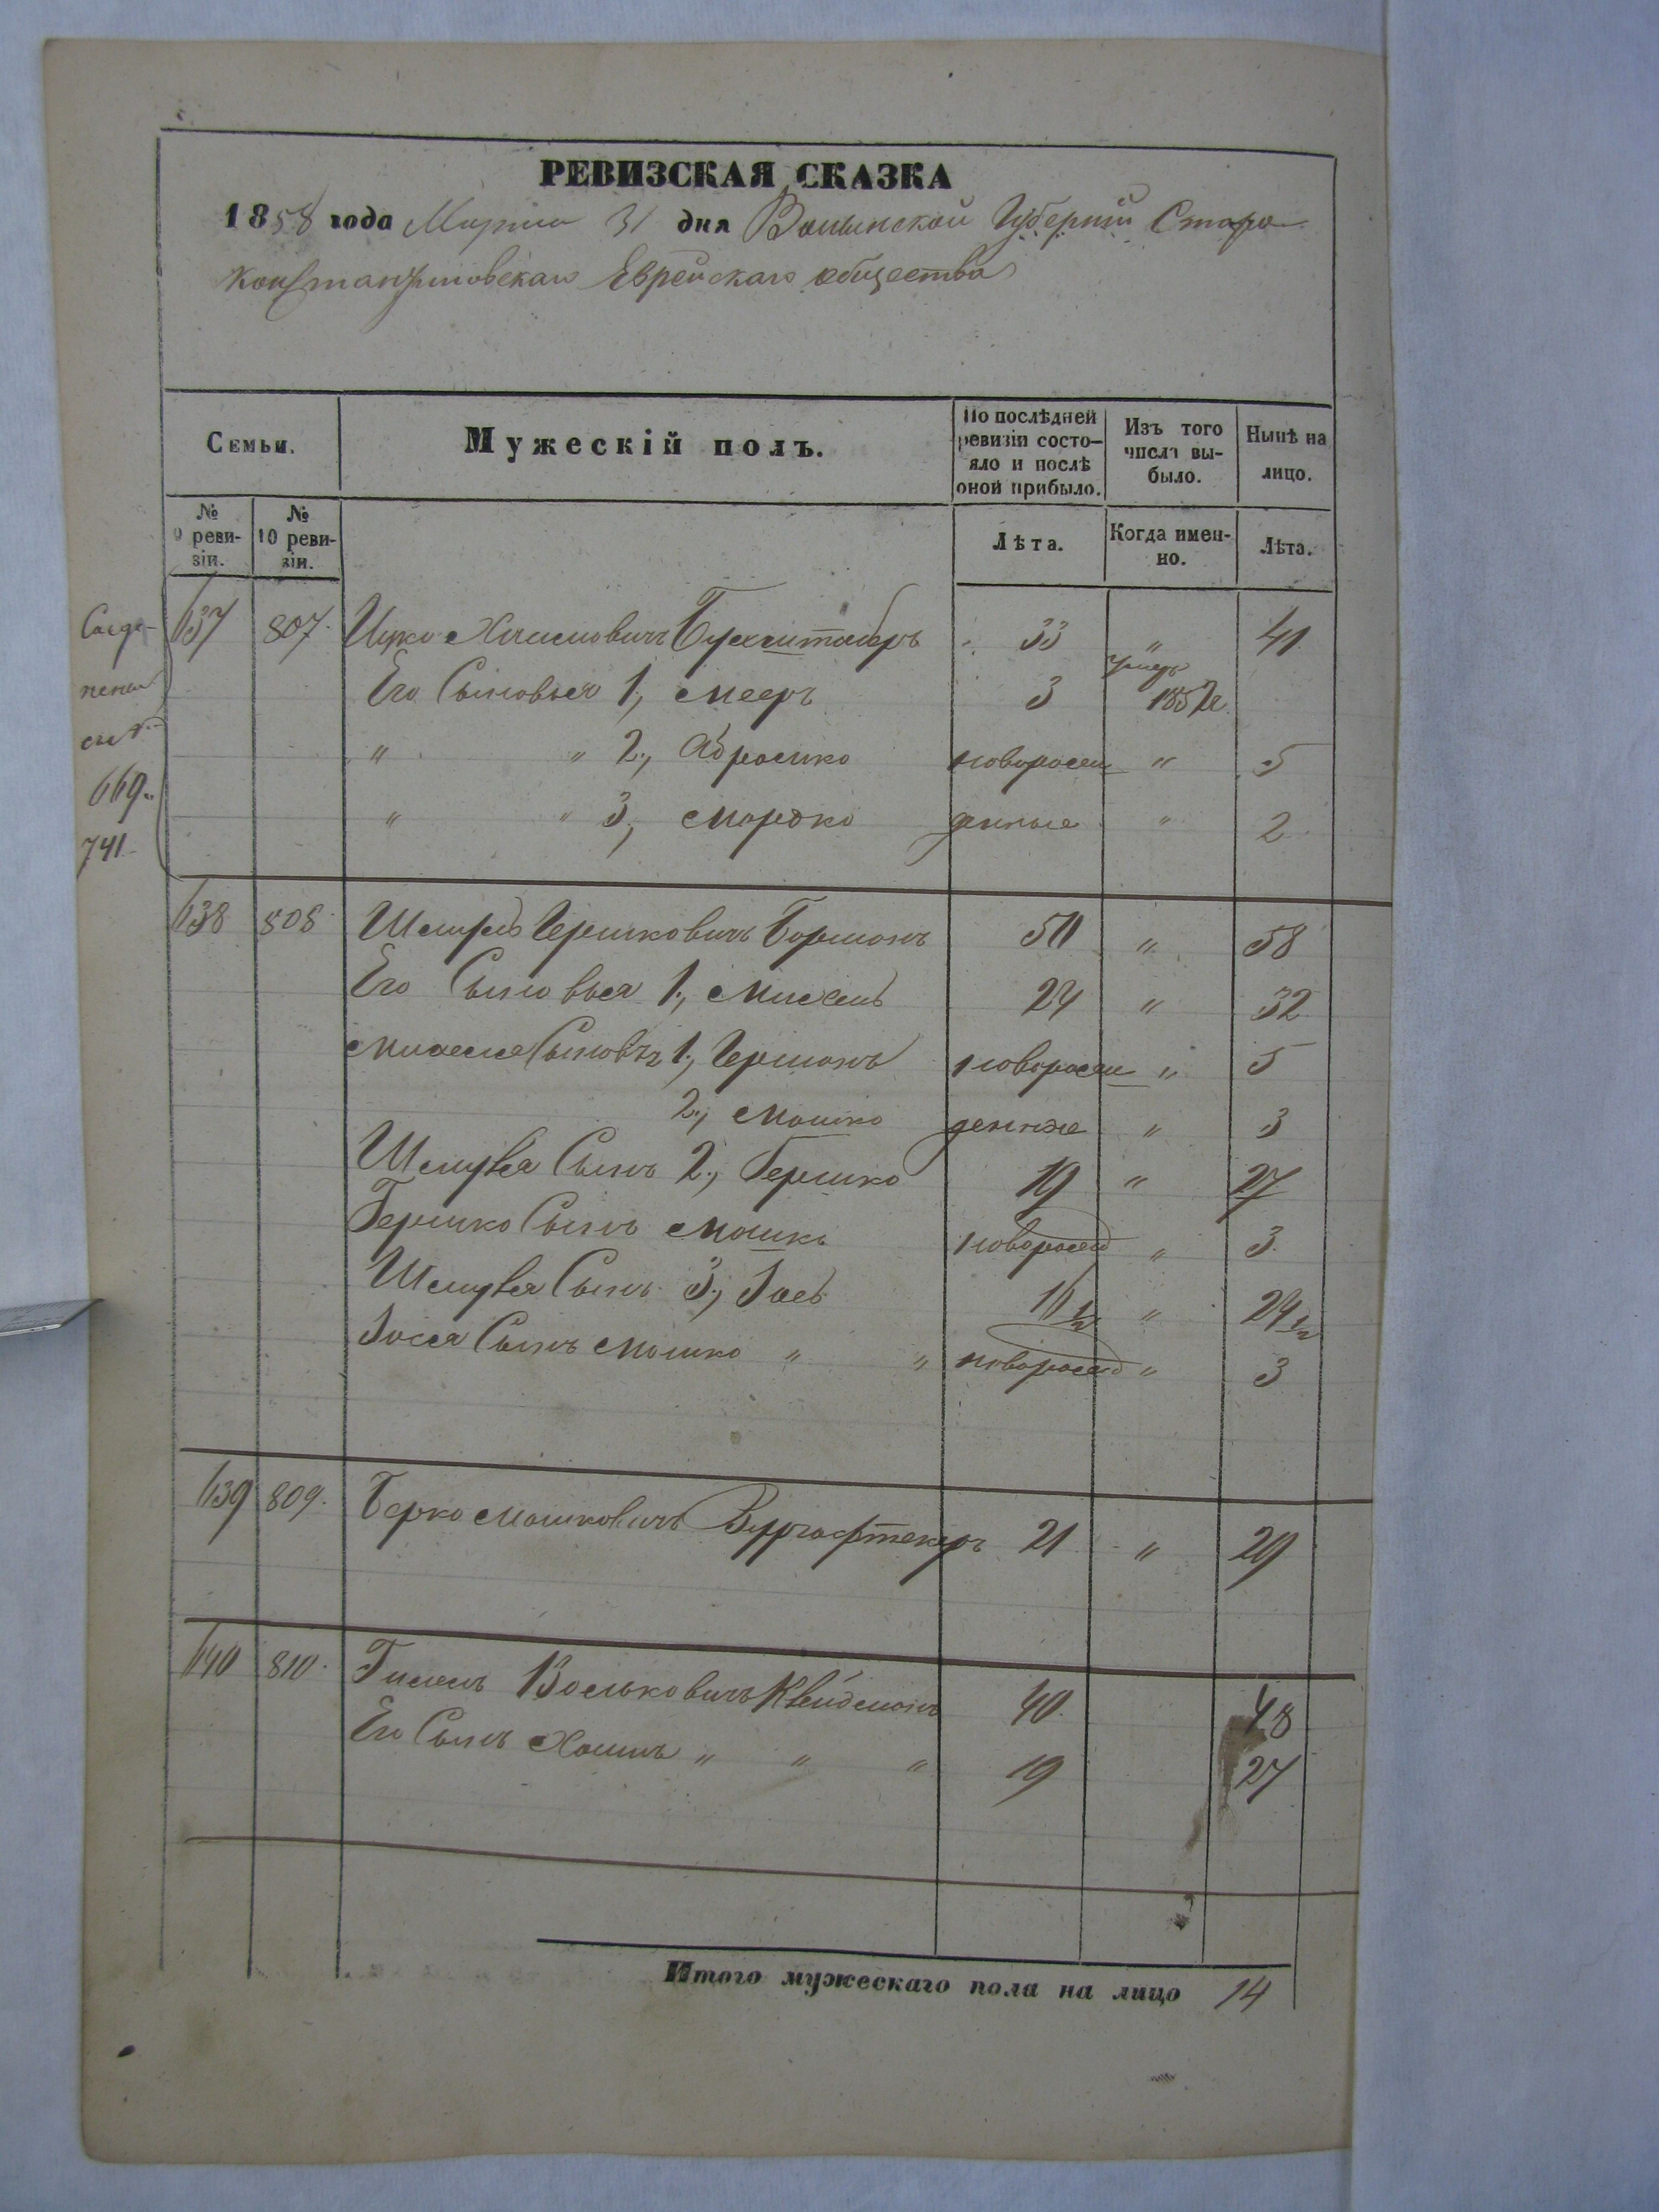 РЕВИЗСКАЯ СКАЗКА
1858 года Марта 31 дня Волынской Губерніи Старо
константиновскаго Еврейскаго общества
Семьи.
Мужескій полъ.
По послѣдней ревизіи состояло и послѣ оной прибыло.
Изъ того числа выбыло.
Нынѣ на лицо.
№ 9 ревизіи.
№ 10 ревизіи.
Лѣта.
Когда именно.
Лѣта.
669.
741
137 807. Ицко Хаимовичъ 33 " 41
Его Сыновья 1, Мееръ 3 умеръ 1852 г.
" " 2, Абрамко новорож " 5
" " 3, Мордко денные " 2
138 808 Шмуль Гершковичъ Борманъ 50 " 58
Его Сыновья 1, Михель 24 " 32
Михеля Сыновья 1, Гершонъ новорож " 5
2, Мошко денные " 3
Шмуля Сынъ 2, Гершко 19 " 27
Гершко Сынъ Мошко новорожд " 3
Шмуля Сынъ 3, Іось 16 1/2 " 24 1/2
Іося Сынъ Мошко " " новорожд " 3
139 809. Берко Мошковичъ 21 " 29
140 810. Вольковичъ Квейдманъ 40. 48
Его Сынъ Хаимъ " " " 19 27
Итого мужескаго пола на лицо 14